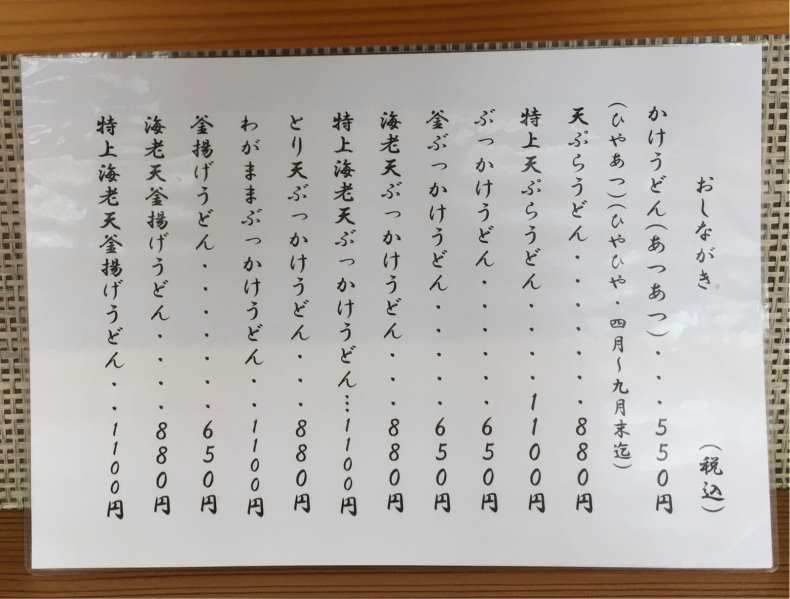 おしながき　（税込）
かけうどん（あつあつ）・・・550円
（ひやあつ）（ひやひや・四月～九月末迄）
天ぷらうどん・・・・・・・880円
特上天ぷらうどん・・・・1100円
ぶっかけうどん・・・・・・650円
釜ぶっかけうどん・・・・・650円
海老天ぶっかけうどん・・・880円
特上海老天ぶっかけうどん…1100円
とり天ぶっかけうどん・・・880円
わがままぶっかけうどん・・1100円
釜揚げうどん・・・・・・・650円
海老天釜揚げうどん・・・・880円
特上海老天釜揚げうどん・・1100円